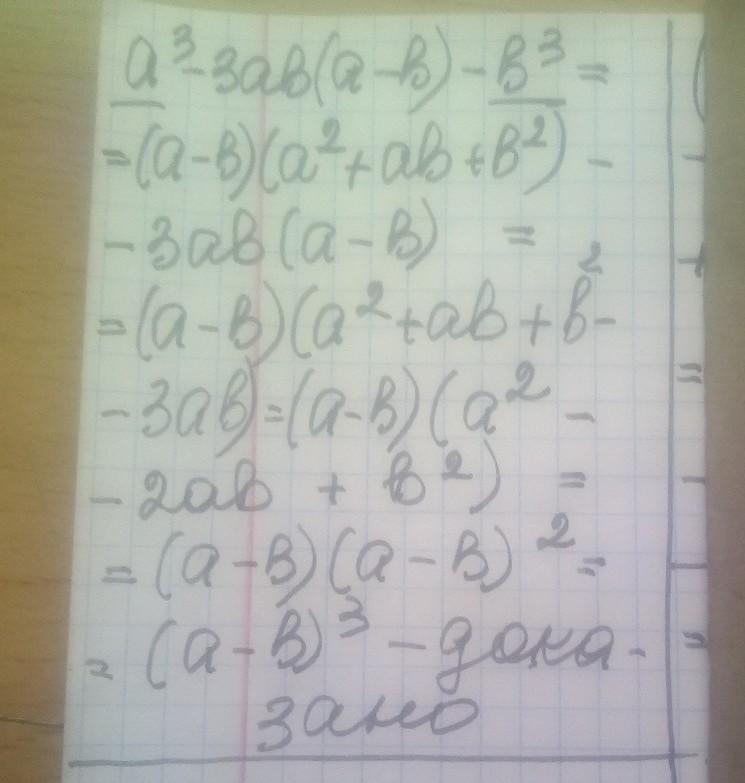 a³-3ab(a-b)-b³=
=(a-b)(a²+ab+b²)-
-3ab(a-b) =
=(a-b)(a²+ab+b²-
-3ab)=(a-b)(a²-
-2ab + b²) =
=(a-b)(a-b)²=
=(a-b)³-дока-
зано